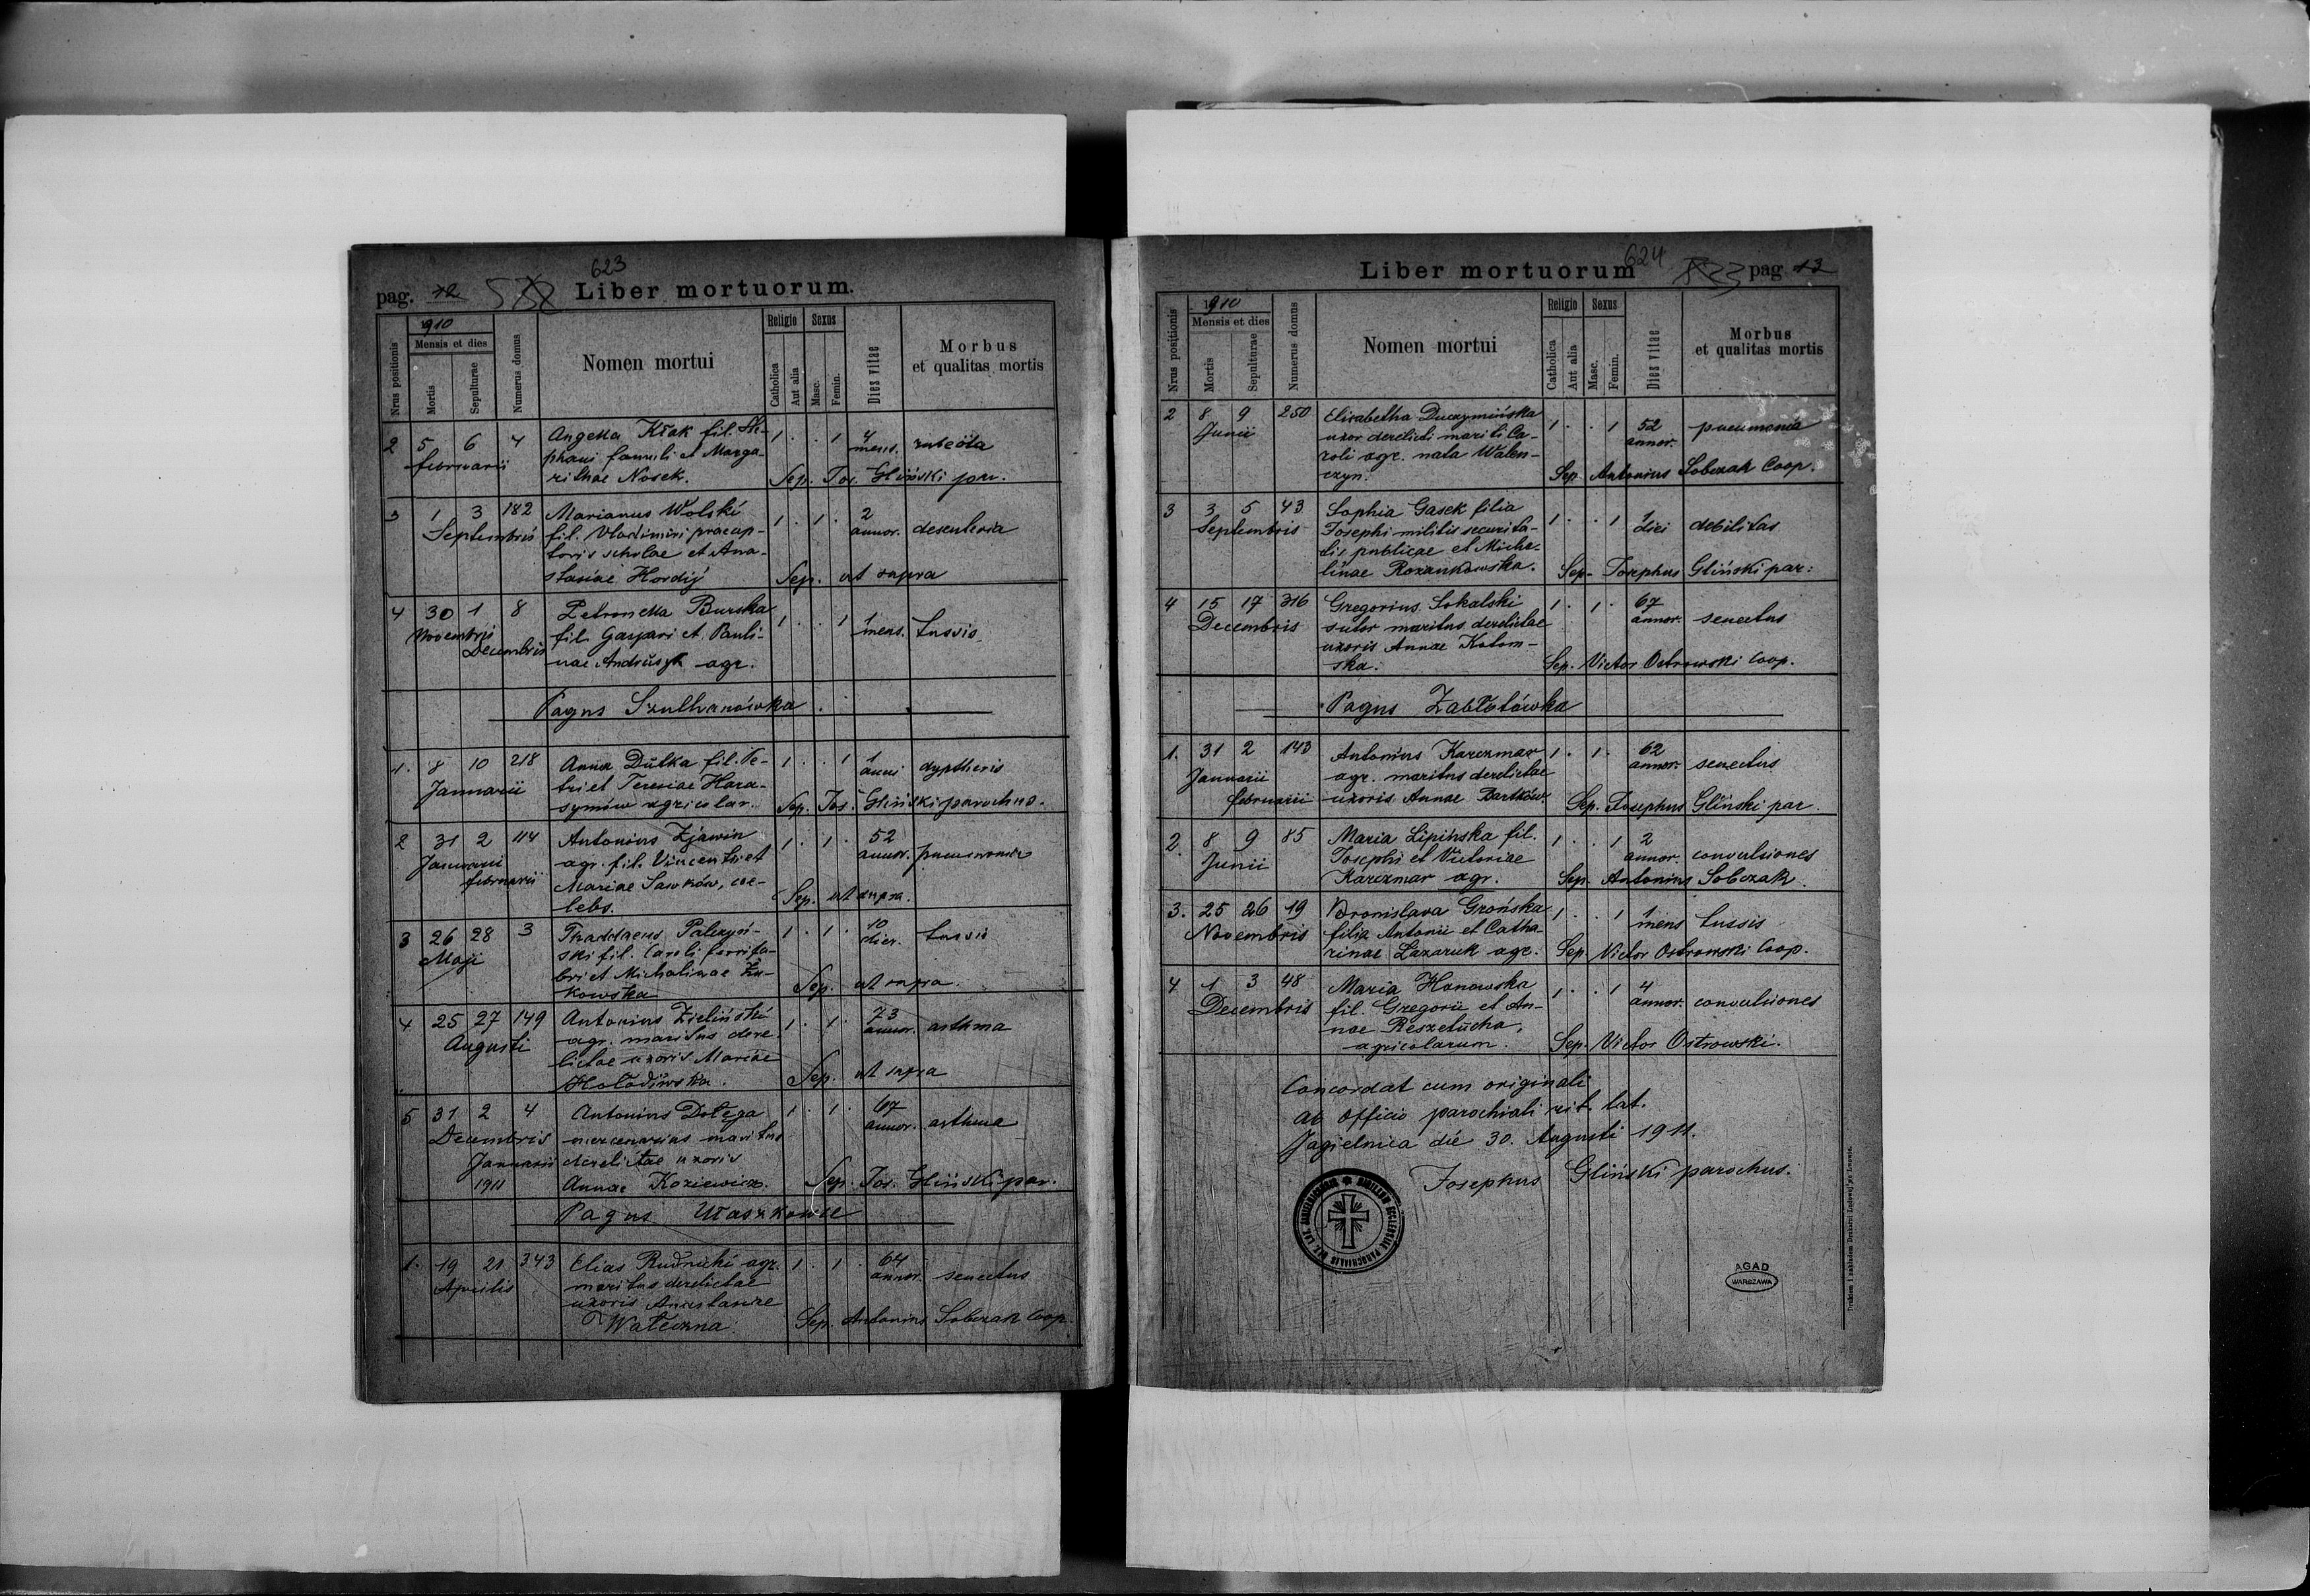 pag. 12 532 623 Liber mortuorum.
Nrus positionis
1910
Mensis et dies
Mortis
Sepulturae
Numerus domus
Nomen mortui
Religio
Catholica
Aut alia
Sexus
Masc.
Femin.
Dies vitae
Morbus
et qualitas mortis
2 5 6 4 Angella Kłak fil. Ste- 1 . . 1 4 rubeola
februarii phani famuli et Marga- mens.
rithae Nosek. Sep. Jos. Gliński par.
3 1 3 182 Marianus Wolski 1 . 1 . 2
Septembris fil. Vladimiri praecep- annor. desenteria
toris scholae et Ana-
stasiae Hordij Sep. ut supra
4 30 1 8 Petronella Burska 1 . . 1 1
Novembris fil. Gaspari et Pauli- mens. tussis
Decembris nae Andruszk agr.
Pagus Szulhanówka
1. 8 10 218 Anna Dutka fil. Pe- 1 . . 1 1 dyptheris
Januarii tri et Teresiae Hara- anni
symów agricolar. Sep. Jos. Gliński parochus.
2 31 2 114 Antonius Zjawin 1 . 1 . 52
Januarii agr. fil. Vincentii et annor. pneumonia
februarii Mariae Sawków, coe-
lebs. Sep. ut supra.
3 26 28 3 Thaddaeus Palczyń- 1 . 1 . 10
Maji ski fil. Caroli ferrifa- dier. tussis
bri et Michalinae Żu-
kowska Sep. ut supra.
4 25 27 149 Antonius Zieliński 1 . 1 . 73
Augusti agr. maritus dere- annor. asthma
lictae uxoris Mariae
Hołodiwska. Sep. ut supra
5 31 2 4 Antonius Dołęga 1 . 1 . 67
Decembris mercenarius maritus annor. asthma
Januarii derelictae uxoris
1911 Annae Koziewicz. Sep. Jos. Gliński par.
Pagus Ułaszkowce
1. 19 21 343 Elias Rudnicki agr. 1 . 1 . 64
Aprilis maritus derelictae annor. senectus
uxoris Anastasiae
Waleczna. Sep. Antonius Sobczak Coop.
Liber mortuorum 624 533 pag 13
Nrus positionis
1910
Mensis et dies
Mortis
Sepulturae
Numerus domus
Nomen mortui
Religio
Catholica
Aut alia
Sexus
Masc.
Femin.
Dies vitae
Morbus
et qualitas mortis
2 8 9 250 Elisabetha Duczymińska 1 . . 1 52 pneumonia
Junii uxor derelicti mariti Ca- annor.
roli agr. nata Walen-
czyn. Sep. Antonius Sobczak Coop.
3 3 5 43 Sophia Gasek filia 1 . . 1 1 debilitas
Septembris Josephi militis securita- diei
tis publicae et Miche-
linae Rozankowska. Sep. Josephus Gliński par:
4 15 17 316 Gregorius Sokalski 1 . 1 . 67
Decembris sutor maritus derelictae annor. senectus
uxoris Annae Kotom-
ska. Sep. Victor Ostrowski Coop.
Pagus Zabłotówka
1. 31 2 143 Antonius Karczmar 1 . 1 . 62
Januarii agr. maritus derelictae annor. senectus
februarii uxoris Annae Bartków. Sep. Josephus Gliński par.
2. 8 9 85 Maria Lipińska fil. 1 . . 1 2
Junii Josephi et Victoriae annor. convulsiones
Karczmar agr. Sep. Antonius Sobczak.
3. 25 26 19 Bronislava Grońska 1 . . 1 1 tussis
Novembris filia Antonii et Catha- mens
rinae Lazaruk agr. Sep. Victor Ostrowski Coop.
4 1 3 48 Maria Hanowska 1 . . 1 4
Decembris fil. Gregorii et An- annor. convulsiones
nae Reszetucha,
agricolarum. Sep. Victor Ostrowski.
Concordat cum originali
ab Officio parochiali rit. lat.
Jagielnica die 30. Augusti 1911.
Josephus Gliński parochus.
AGAD
WARSZAWA
Drukiem i nakładem Drukarni Ludowej we Lwowie.